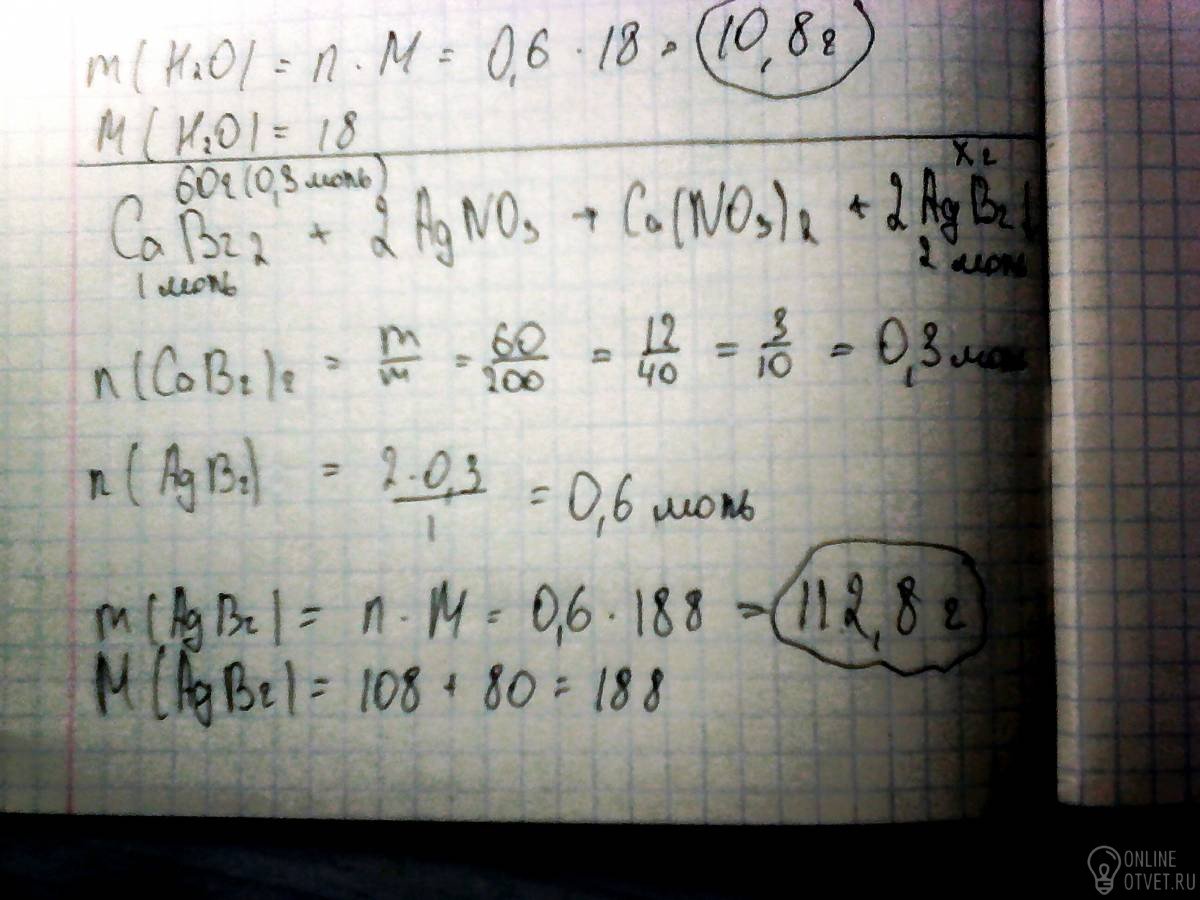 m(H₂O) = n · M = 0,6 · 18 = 10,8 г
M(H₂O) = 18
60г(0,3 моль) x г
CaBr₂ + 2AgNO₃ → Ca(NO₃)₂ + 2AgBr↓
1 моль 2 моль
n(CaBr)₂ = m/m = 60/200 = 12/40 = 3/10 = 0,3 моль
n(AgBr) = 2·0,3/1 = 0,6 моль
m(AgBr) = n · M = 0,6 · 188 = 112,8 г
M(AgBr) = 108 + 80 = 188
ONLINE
OTVET.RU